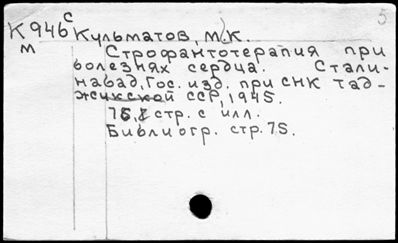 5
К946 с Кульматов, М.К.
м
Строфантотерапия при
болезнях сердца. Стали-
набад, Гос. изд. при СНК Тад-
жикской ССР, 1945.
75, стр. с илл.
Библиогр. стр. 75.